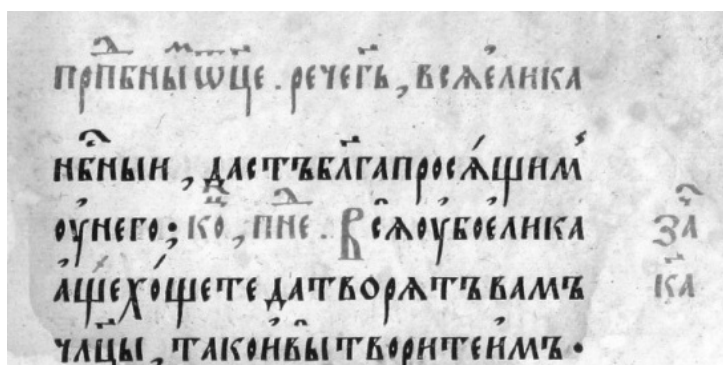 прⷣпбны҇ѿц҃е. рече гь҃, всѧ́ елика
нбⷭ҇ныи, дастъ бл҃га просѧ́щимъ
ѹ҆ него: коⷰ҇, пнⷣе. Всѧ̑ ѹ҆бо е҆лика заⷱ҇
а҆ще хо́щете да творѧтъ вамъ к҃а
чл҃цы, тако и҆ вы̀ творите и҆мъ.